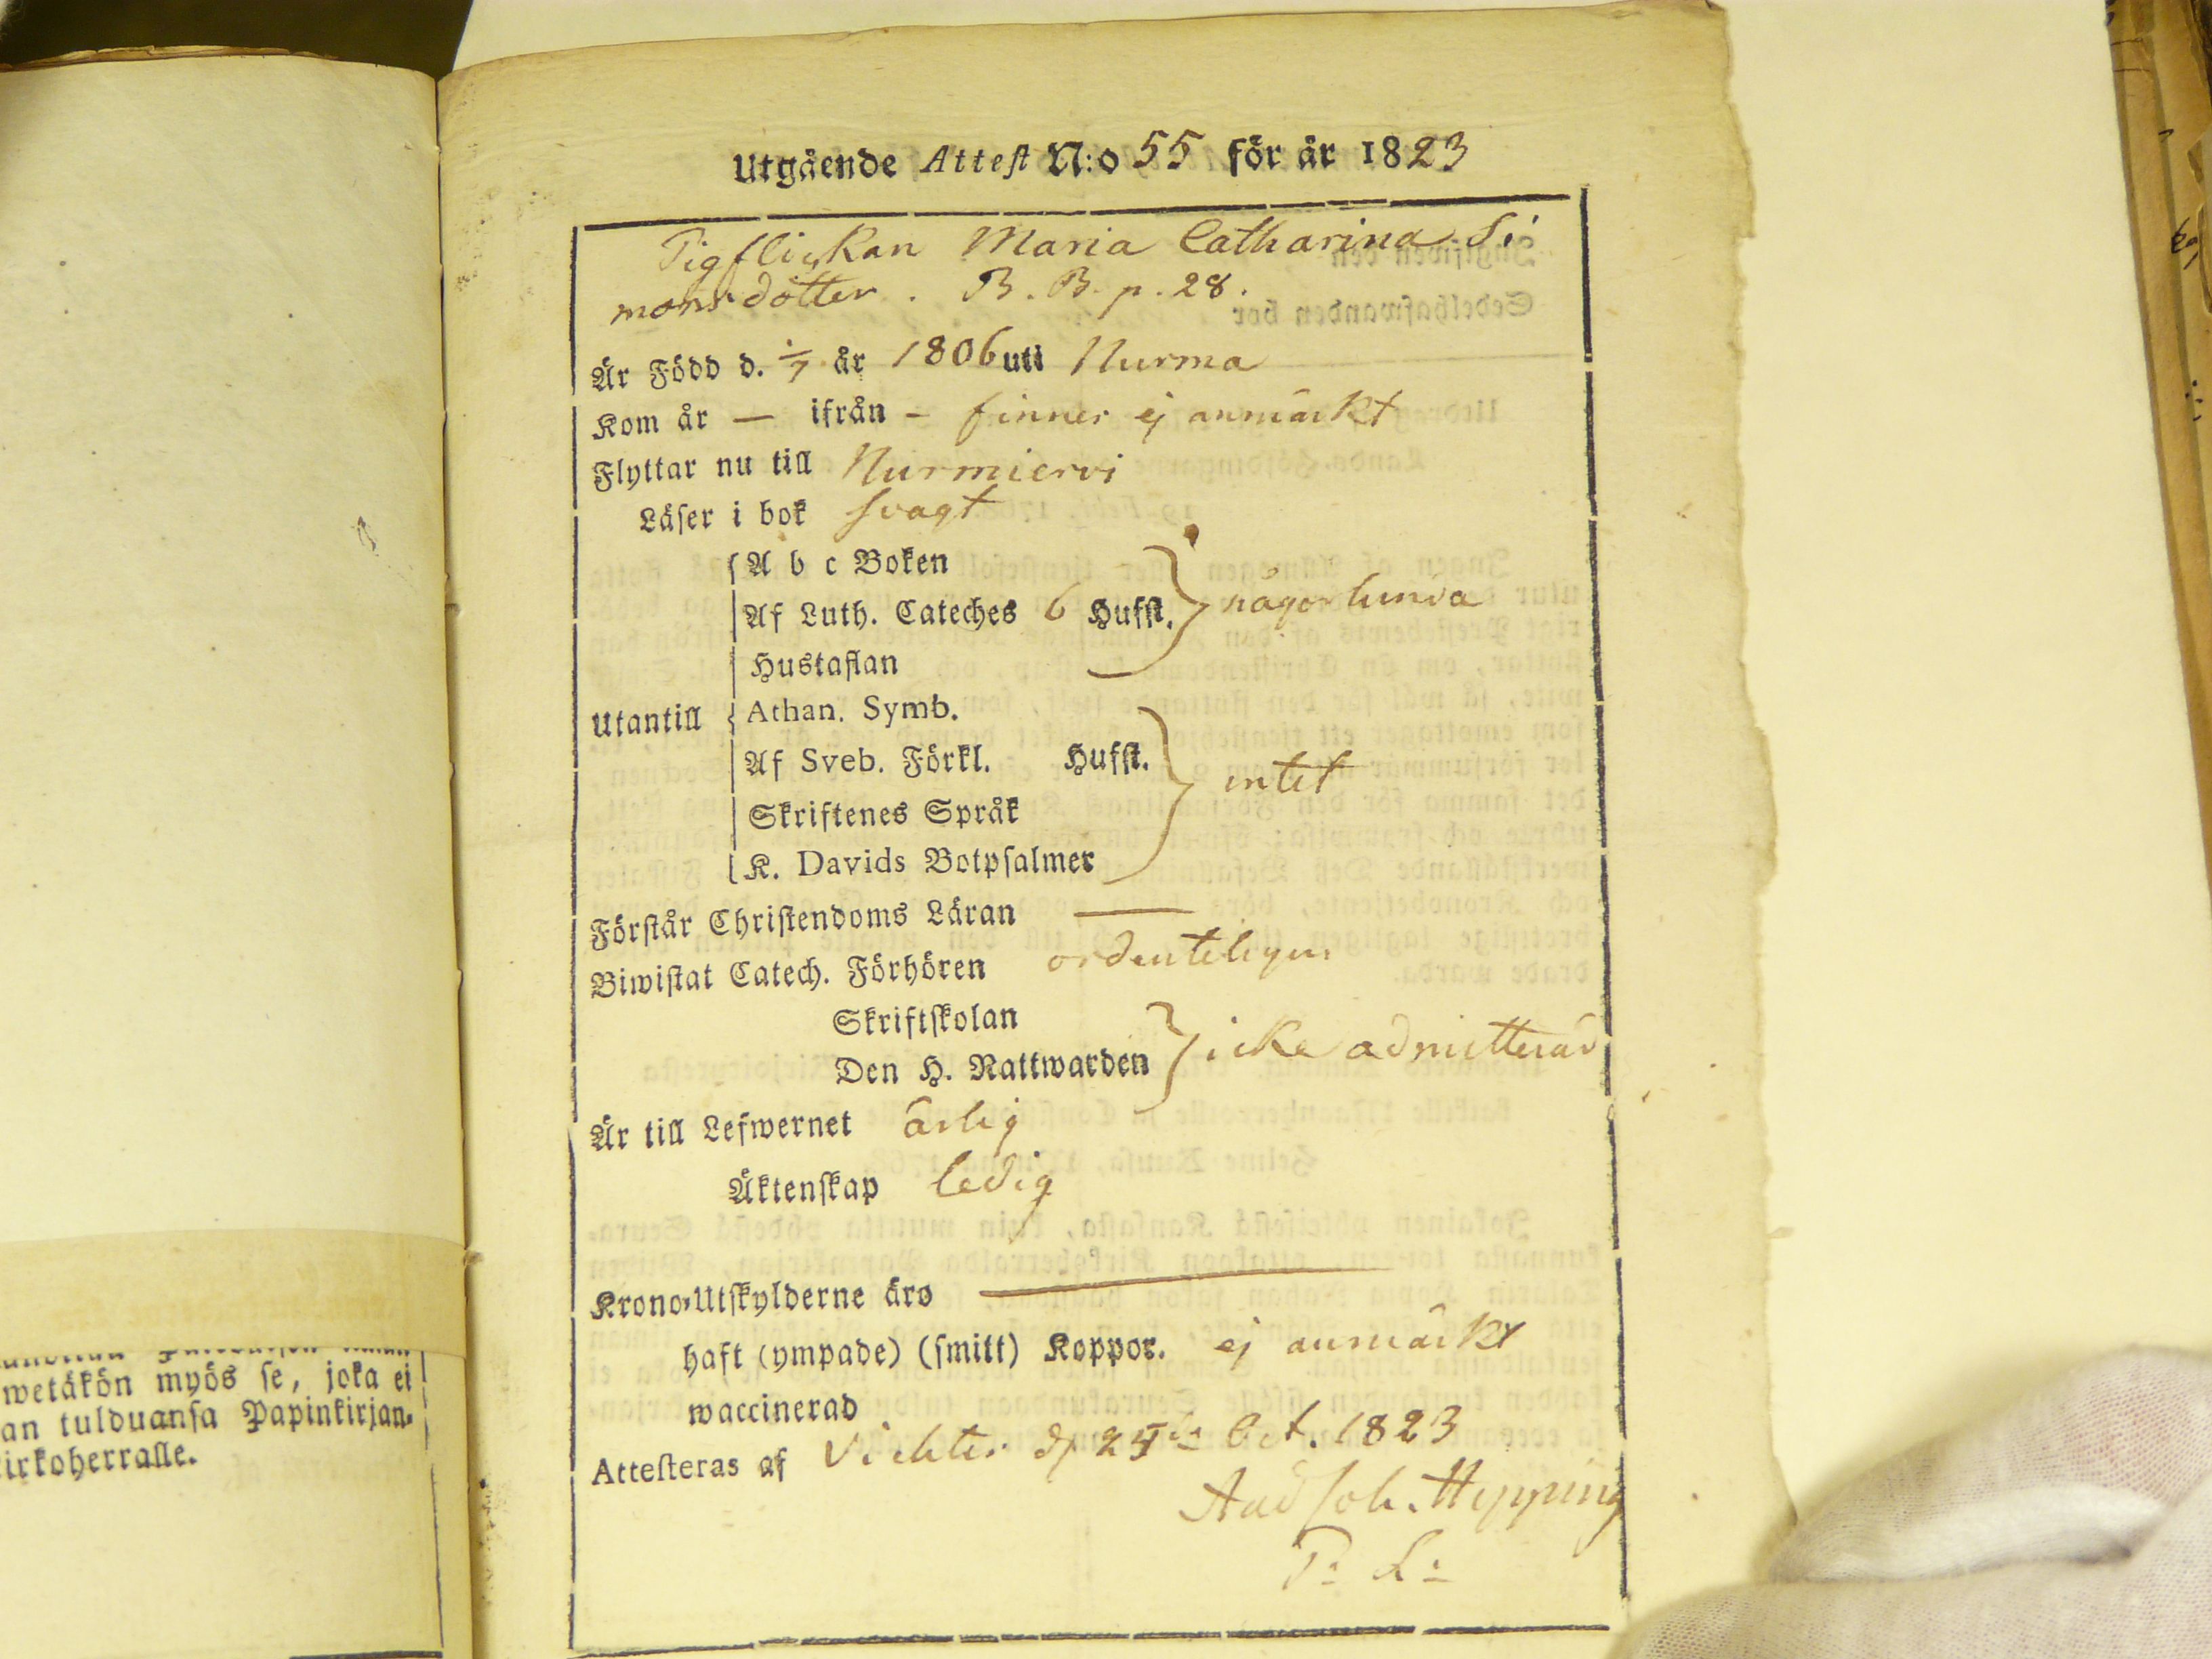 Utgående Attest N:o 55 för år 1823
Pigflickan Maria Catharina Si
monsdotter. B. B. p. 28.
Är Född d. år 1806 uti Nurma
Kom år — ifrån – finner ej anmärkt
Flyttar nu till Nurmiervi
Läser i bok svagt
A b c Boken
Af Luth. Cateches 6 Hufst. någorlunda
Hustaflan
Utantill Athan. Symb.
Af Sveb. Förkl. Hufst. intet
Skriftenes Språk
K. Davids Botpsalmer
Förstår Christendoms Läran —
Biwistat Catech. Förhören ordenteligen
Skriftskolan
Den H. Nattwarden icke admitterad
Är till Lefwernet ärlig
Äktenskap ledig
Krono-Utskylderne äro —
haft (ympade) (smitt) Koppor. ej anmärkt
waccinerad
Attesteras af Vichtis Oct. 1823
And Joh. Hipping
P: L:
wetäkön myös se, joka ei
an tulduansa Papinkirjan-
irkoherralle.